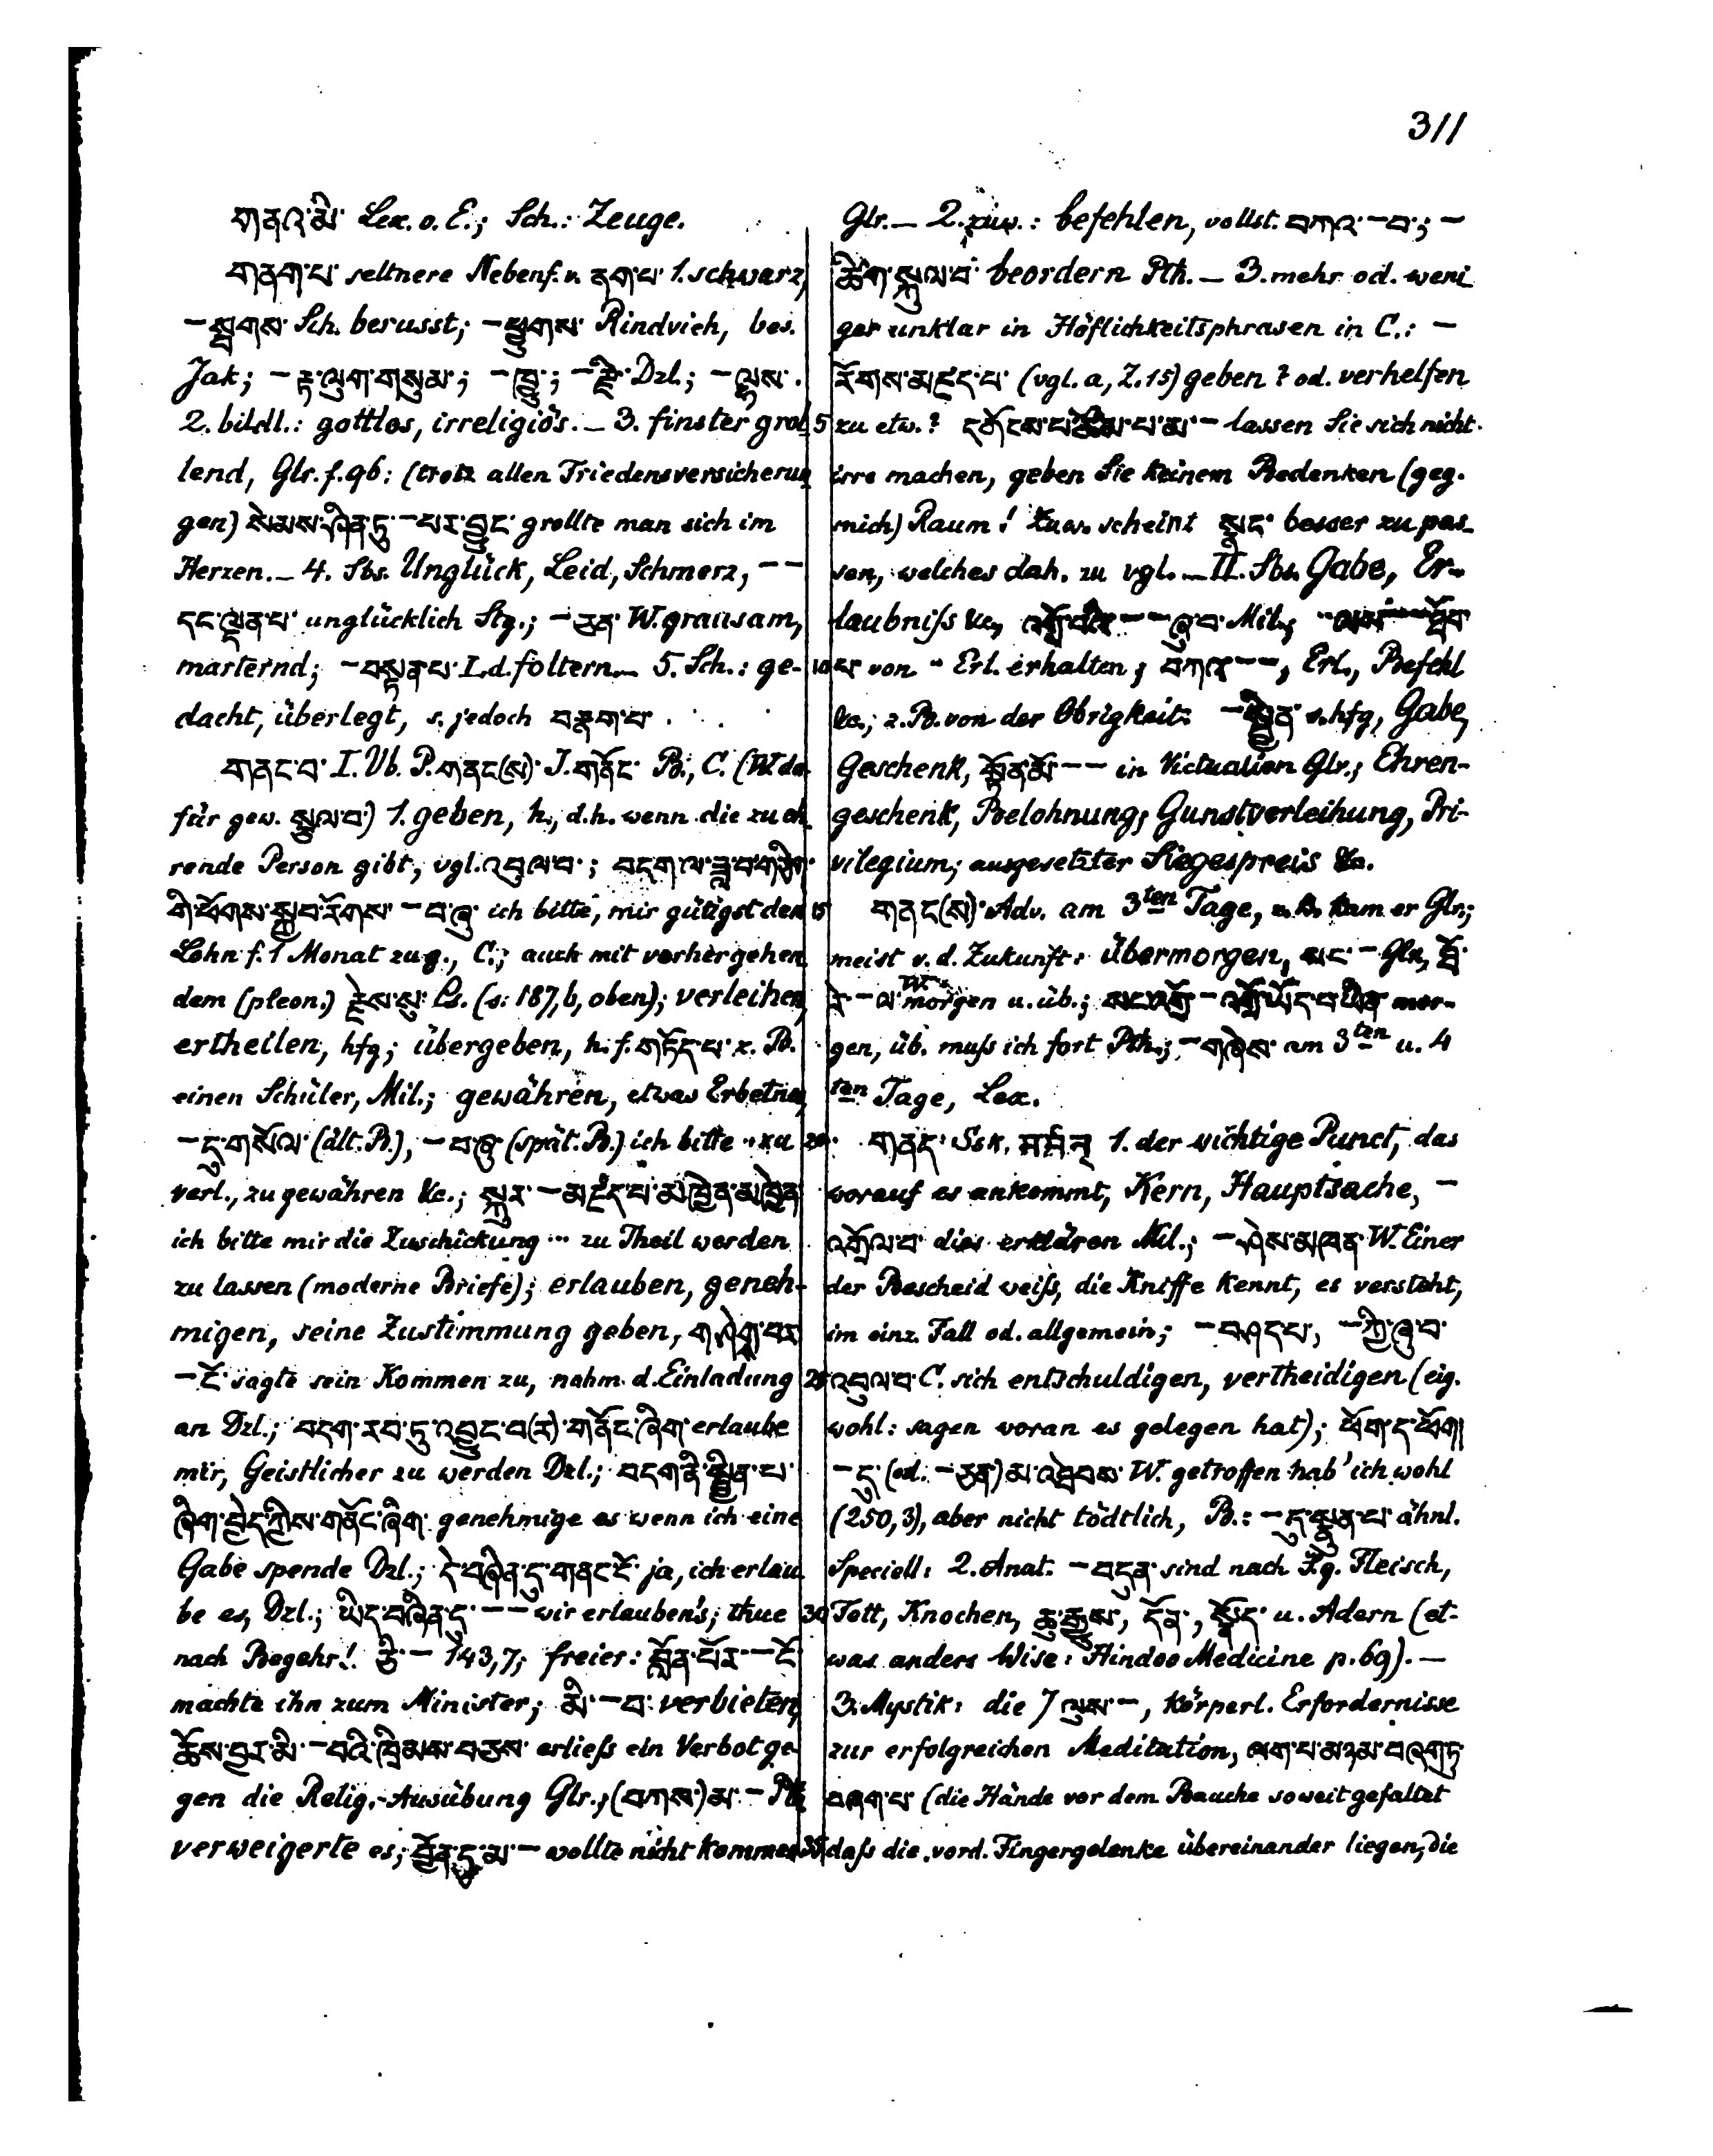 311
གནའ་མི་ Lex. o. E.; Sch.: Zeuge.
གནག་པ་ seltnere Nebenf. v. ནག་པ་ 1. schwarz,
– སྦགས་ Sch. berusst; – ཕྱུགས་ Rindvieh, bes.
Jak; – རྟ་ལུག་གསུམ་; – ཁྱུ་; – རྫི་ Dzl.; – ལྷས་.
2. bildl.: gottlos, irreligiös. – 3. finster grol
lend, Glr. f. 96: (trotz allen Friedensversicherun
gen) སེམས་ཤིན་ཏུ – པར་བྱུང་ grollte man sich im
Herzen. – 4. Sbs. Unglück, Leid, Schmerz, – –
དང་ལྡན་པ་ unglücklich Stg.; – ཅན་ W. grausam,
marternd; – བསྟན་པ་ I. d. foltern. – 5. Sch.: ge-
dacht, überlegt, s. jedoch བརྣག་པ་.
གནང་བ་ I. Vb. P. གནང(ས)་ J. གནོང་ B., C. (W. da-
für gew. སྩལ་བ་) 1. geben, h., d.h. wenn die zu eh
rende Person gibt, vgl. འབུལ་བ་; བདག་ལ་ཟླ་བ་གཅིག་
གི་ཕོགས་སྐྱབ་རོགས་ – བ་ཞུ་ ich bitte, mir gütigst den
Lohn f. 1 Monat zu g., C.; auch mit vorhergehen
dem (pleon.) རྗེས་སུ་ Ls. (s: 187, b, oben); verleihen,
ertheilen, hfg; übergeben, h. f. གཏོད་པ་ z. B.
einen Schüler, Mil.; gewähren, etwas Erbetnes,
– དུ་གསོལ་ (ält. B.), – བ་ཞུ་ (spät. B.) ich bitte .. zu
verl., zu gewähren &c.; སྐུར་ – མཛད་པ་མཁྱེན་མཁྱེན
ich bitte mir die Zuschickung ... zu Theil werden
zu lassen (moderne Briefe); erlauben, geneh-
migen, seine Zustimmung geben, གཤེགས་པར
– ངོ་ sagte sein Kommen zu, nahm d. Einladung
an Dzl.; བདག་རབ་ཏུ་འབྱུང་བ(ར)་གནོང་ཞིག་ erlaube
mir, Geistlicher zu werden Dzl.; བདག་ནི་སྦྱིན་པ་
ཞིག་བྱེད་ཀྱིས་གནོང་ཞིག་ genehmige es wenn ich eine
Gabe spende Dzl.; དེ་བཞིན་དུ་གནང་ངོ་ ja, ich erlau
be es, Dzl.; ཡིད་བཞིན་དུ་ – – wir erlauben's; thue
nach Begehr! ཅི་ – 143,7; freier: བློན་པོར་ – ངོ་
machte ihn zum Minister; མི་ – བ་ verbieten,
ཆོས་བྱར་མི་ – བའི་ཁྲིམས་བཅས་ erliess ein Verbot ge-
gen die Relig.-Ausübung Glr.; (བཀས་)མ་ – Pth.
verweigerte es; བྱོན་དུ་མ་ – wollte nicht kommen
Glr. – 2. zuw.: befehlen, vollst. བཀའ་ – བ་; –
ཚིག་སྐུལ་བ་ beordern Pth. – 3. mehr od. weni
ger unklar in Höflichkeitsphrasen in C.: –
རོགས་མཛད་པ་ (vgl. a, Z. 15) geben? od. verhelfen
5 zu etw.? དགོངས་པ་ཚོམ་པ་མ་ – lassen Sie sich nicht
irre machen, geben Sie keinem Bedenken (geg.
mich) Raum! Zuw. scheint སྣང་ besser zu pas-
sen, welches dah. zu vgl. – II. Sbs. Gabe, Er-
laubniss &c, འགྲོ་བའི་ – – ཞུ་བ་ Mil.; ལམ་ – ཐོབ་
10 པ་ von .. Erl. erhalten; བཀའ་ – –, Erl., Befehl
&c.; z. B. von der Obrigkeit: – སྦྱིན་ s. hfg, Gabe,
Geschenk, སྟོན་མོ་ – – in Victualien Glr.; Ehren-
geschenk, Belohnung, Gunstverleihung, Pri-
vilegium; ausgesetzter Siegespreis &c.
15 གནང(ས)་ Adv. am 3ten Tage, z. B. kam er Glr.;
meist v. d. Zukunft: übermorgen, སང་ – Glr, ཐོ་
རེ་ – ལ་ W. morgen u. üb.; སང་འགྲོ་ – འགྲོ་ཡོད་པ་ཡིན་ mor-
gen, üb. muss ich fort Pth.; – གཞེས་ am 3ten u. 4
ten Tage, Lex.
20 གནད་ Ssk. मर्मन् 1. der wichtige Punct, das
worauf es ankommt, Kern, Hauptsache, –
འགྲོལ་བ་ dies erklären Mil.; – ཤེས་མཁན་ W. Einer
der Bescheid weiss, die Kniffe kennt, es versteht,
im einz. Fall od. allgemein; – བཤད་པ་, – ཀྱི་ཞུ་བ་
25 འབུལ་བ་ C. sich entschuldigen, vertheidigen (eig.
wohl: sagen woran es gelegen hat); ཕོག་ད་ཕོག།
– དུ་ (od. – ཅན་) མ་འཐེབས་ W. getroffen hab' ich wohl
(250,3), aber nicht tödtlich, B.: – དུ་སྣུན་པ་ ähnl.
Speciell: 2. Anat. – བདུན་ sind nach Fg. Fleisch,
30 Fett, Knochen, ཆུ་རྒྱུས་, དོན་, སྣོད་ u. Adern (et-
was anders Wise: Hindoo Medicine p. 69). –
3. Mystik: die 7 ལུས་ –, körperl. Erfordernisse
zur erfolgreichen Meditation, ལག་པ་མཉམ་བཞག་ཏུ་
བཞག་པ་ (die Hände vor dem Bauche soweit gefaltet
35 dass die vord. Fingergelenke übereinander liegen, die